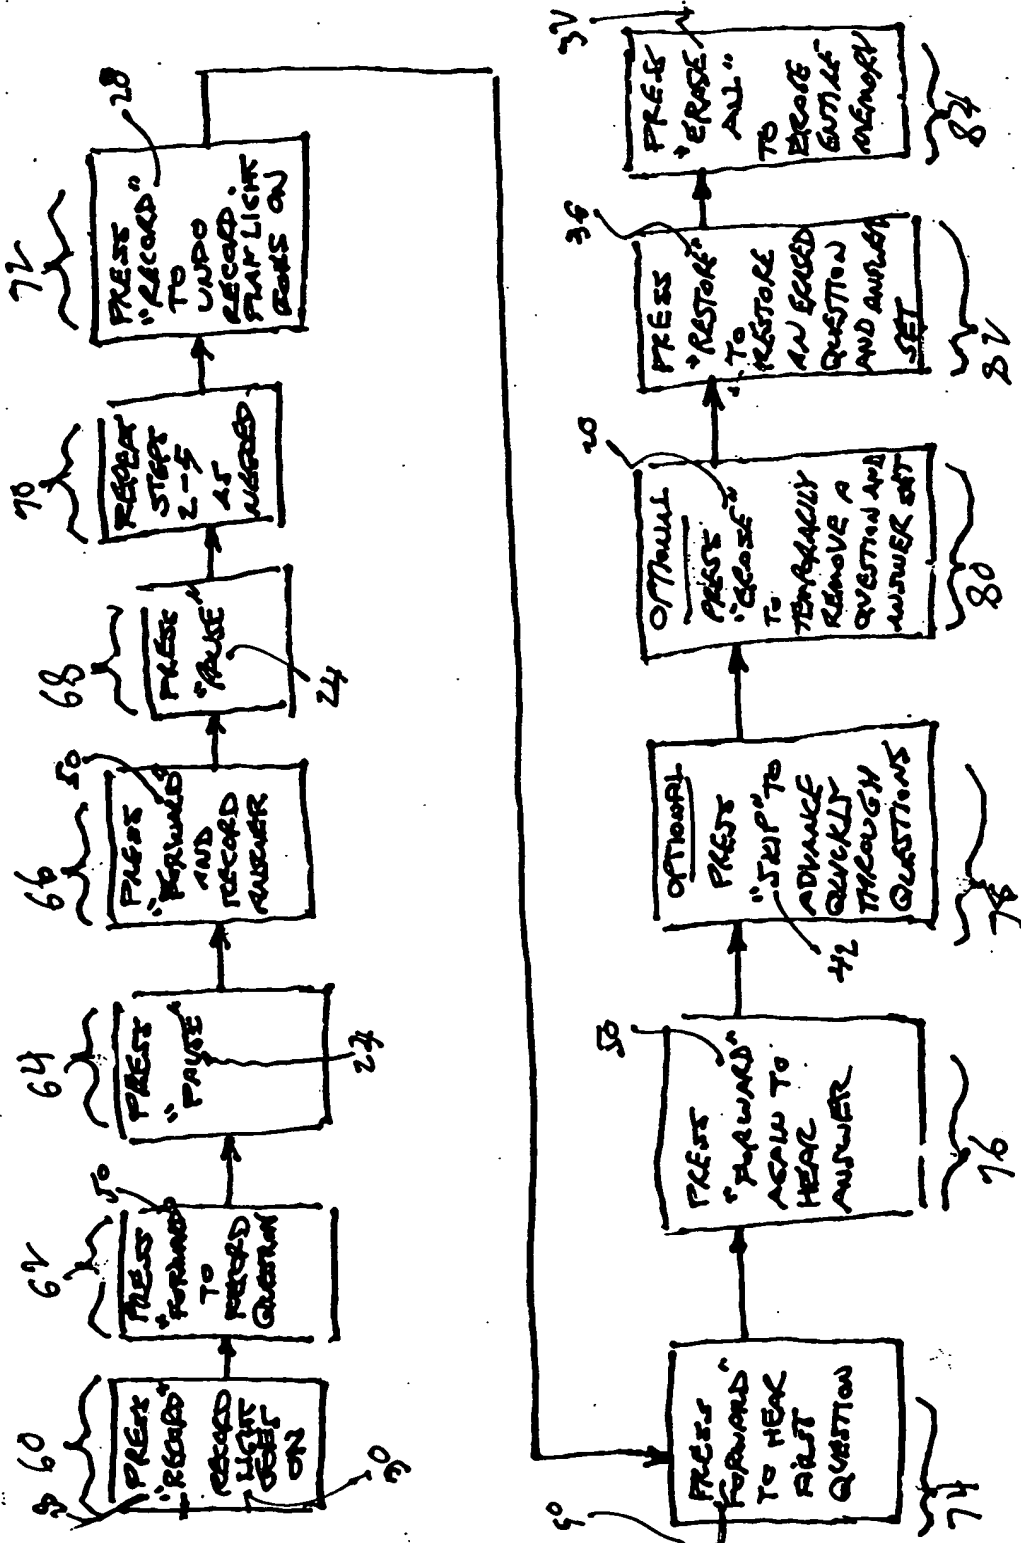 60
PRESS
"RECORD"
RECORD
LIGHT
GOES
ON
30
62
50
PRESS
"FORWARD"
TO
RECORD
QUESTION
64
PRESS
"PAUSE"
24
66
50
PRESS
"FORWARD"
AND
RECORD
ANSWER
68
PRESS
"PAUSE"
24
70
REPEAT
STEPS
2-5
AS
NEEDED
72
28
PRESS
"RECORD"
TO
UNDO
RECORD.
PLAY LIGHT
GOES ON
50
PRESS
"FORWARD"
TO HEAR
FIRST
QUESTION
74
50
PRESS
"FORWARD"
AGAIN TO
HEAR
ANSWER
76
OPTIONAL
PRESS
"SKIP" TO
ADVANCE
QUICKLY
THROUGH
QUESTIONS
42
78
20
OPTIONAL
PRESS
"ERASE"
TO
TEMPORARILY
REMOVE A
QUESTION AND
ANSWER SET
80
36
PRESS
"RESTORE"
TO
RESTORE
AN ERASED
QUESTION
AND ANSWER
SET
82
32
PRESS
"ERASE
ALL"
TO
ERASE
ENTIRE
MEMORY
84